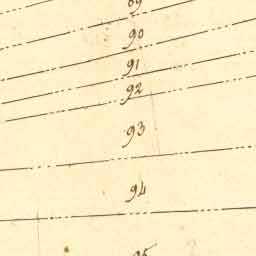 89
90
91
92
93
94
95